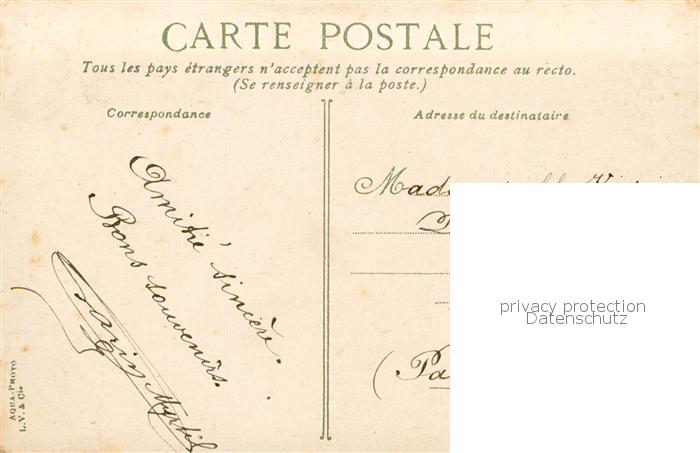 CARTE POSTALE
Tous les pays étrangers n'acceptent pas la correspondance au recto.
(Se renseigner à la poste.)
Correspondance
Adresse du destinataire
Amitié sincère.
Bons souvenirs.
Myrtil
AQUA-PHOTO
L. V. & Cie
privacy protection
Datenschutz